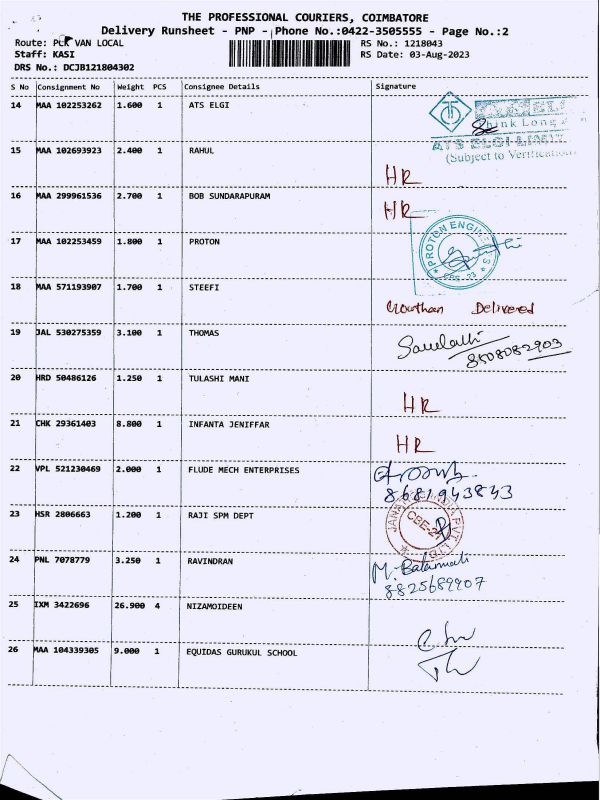 THE PROFESSIONAL COURIERS, COIMBATORE
Delivery Runsheet - PNP - Phone No.:0422-3505555 - Page No.:2
Route: PLK VAN LOCAL RS No.: 1218043
Staff: KASI RS Date: 03-Aug-2023
DRS No.: DCJB121804302
S No Consignment No Weight PCS Consignee Details Signature
14 MAA 102253262 1.600 1 ATS ELGI
Think Long
ATS ELGI LIMIT
(Subject to Verification
15 MAA 102693923 2.400 1 RAHUL
HR
16 MAA 299961536 2.700 1 BOB SUNDARAPURAM
HR
17 MAA 102253459 1.800 1 PROTON
PROTON ENGINEERS
CBE - 23
18 MAA 571193907 1.700 1 STEEFI
Gowthan Delivered
19 JAL 530275359 3.100 1 THOMAS
8508082903
20 HRD 50486126 1.250 1 TULASHI MANI
HR
21 CHK 29361403 8.800 1 INFANTA JENIFFAR
HR
22 VPL 521230469 2.000 1 FLUDE MECH ENTERPRISES
8681943843
23 HSR 2806663 1.200 1 RAJI SPM DEPT
CBE-21
24 PNL 7078779 3.250 1 RAVINDRAN
M. Balamali
8825689907
25 IXM 3422696 26.900 4 NIZAMOIDEEN
26 MAA 104339305 9.000 1 EQUIDAS GURUKUL SCHOOL